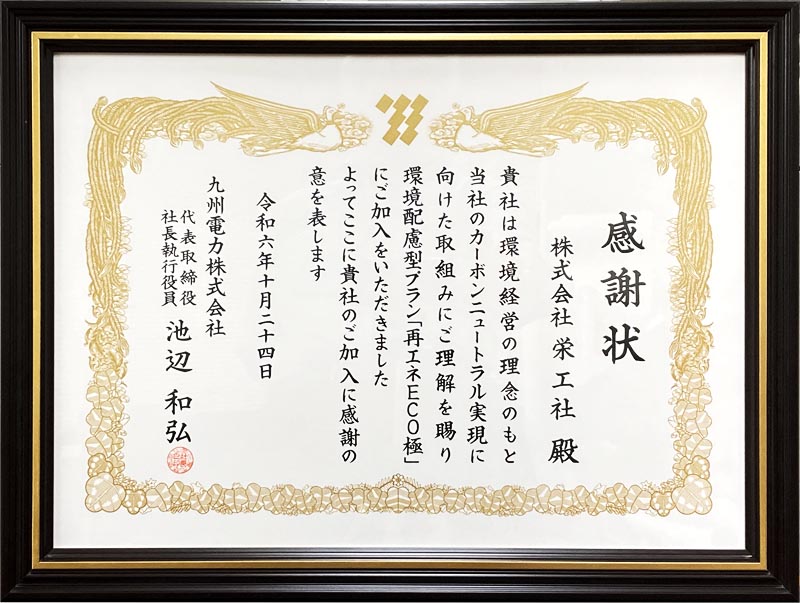 感謝状
株式会社 栄工社 殿
貴社は環境経営の理念のもと
当社のカーボンニュートラル実現に
向けた取組みにご理解を賜り
環境配慮型プラン「再エネECO極」
にご加入をいただきました
よってここに貴社のご加入に感謝の
意を表します
令和六年十月二十四日
九州電力株式会社
代表取締役
社長執行役員
池辺 和弘